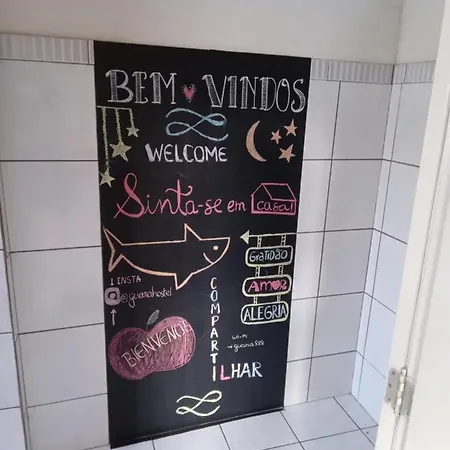 BEM VINDOS
WELCOME
Sinta-se em casa!
GRATIDÃO
AMOR
ALEGRIA
INSTA
@guarahostel
BIENVENIDO
COMPARTILHAR
WI-FI